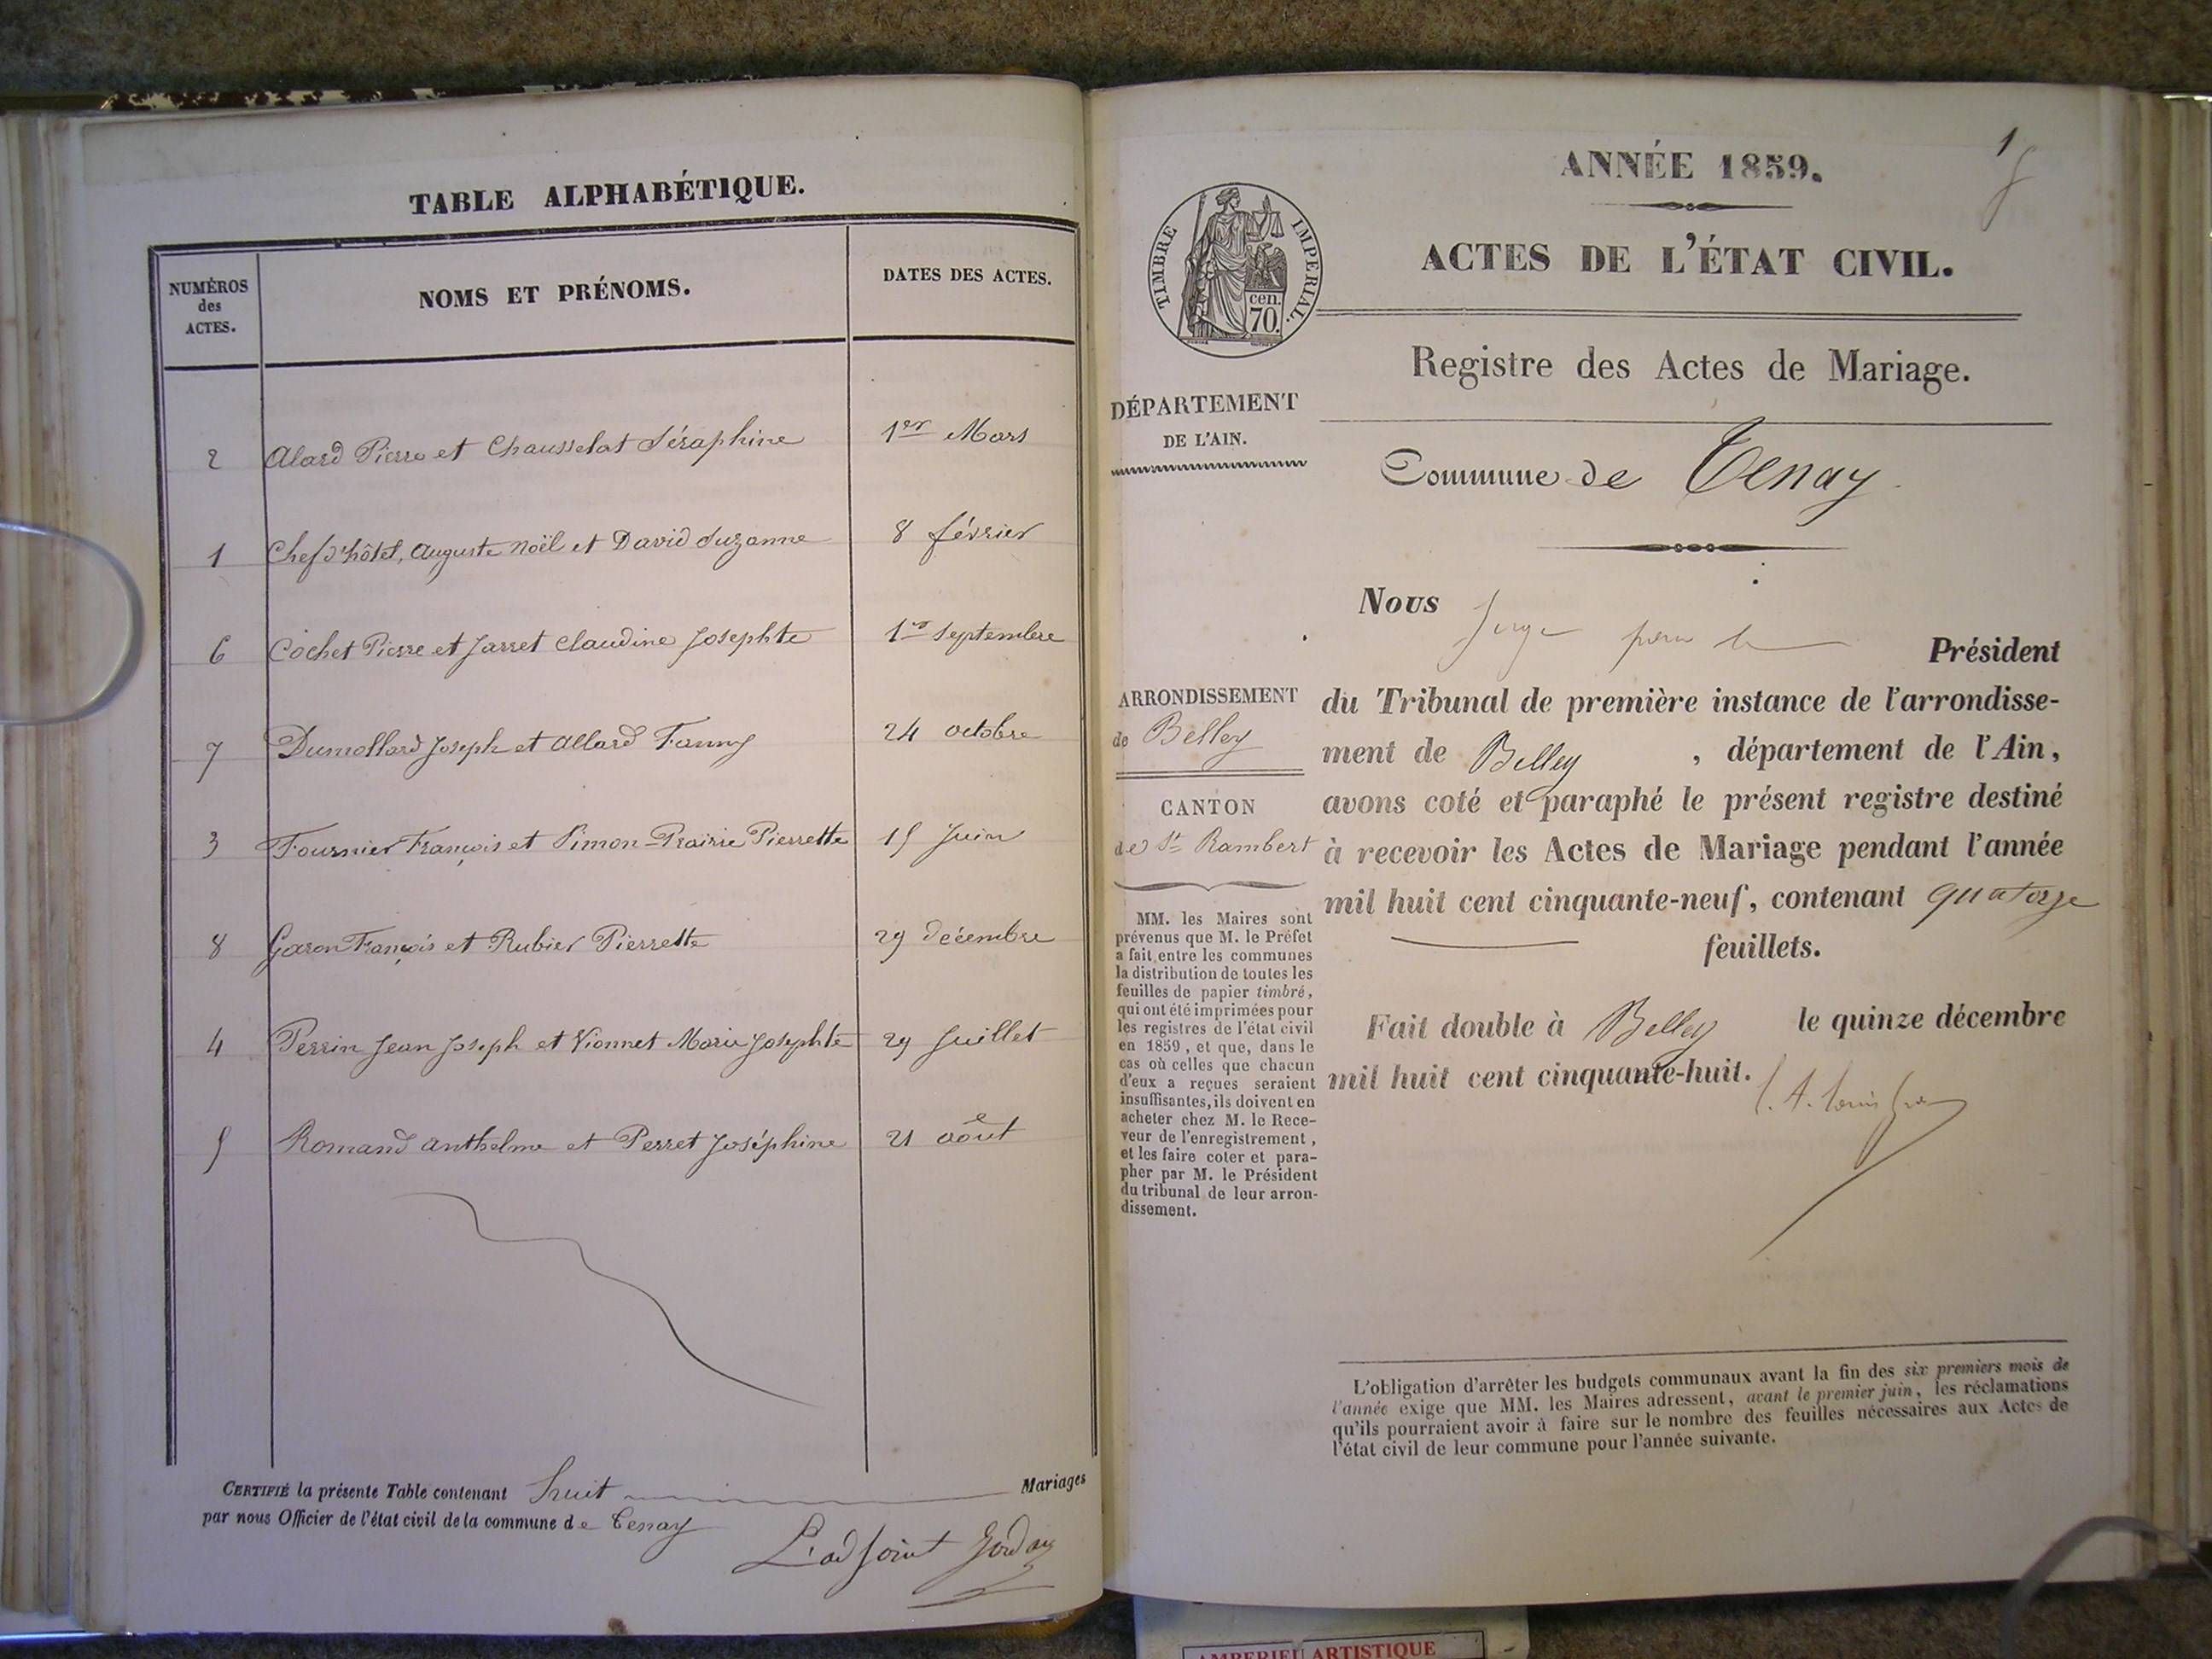 TABLE ALPHABÉTIQUE.
NUMÉROS
des
ACTES.
NOMS ET PRÉNOMS.
DATES DES ACTES.
2 Alard Pierre et Chausselat Séraphine 1er Mars
1 Chef d'hôtel, Auguste Noël et David Suzanne 8 février
6 Cochet Pierre et Jarret Claudine Josephte 1er septembre
7 Dumollard Joseph et Allard Fanny 24 octobre
3 Fournier François et Simon-Prairie Pierrette 15 Juin
8 Garon François et Rubier Pierrette 29 décembre
4 Perrin Jean Joseph et Vionnet Marie Josephte 29 Juillet
5 Romand Anthelme et Perret Joséphine 21 août
CERTIFIÉ la présente Table contenant huit Mariages
par nous Officier de l'état civil de la commune de Tenay
L'adjoint
1
ANNÉE 1859.
TIMBRE IMPÉRIAL.
cen.
70.
ACTES DE L'ÉTAT CIVIL.
Registre des Actes de Mariage.
DÉPARTEMENT
DE L'AIN.
Commune de Tenay
ARRONDISSEMENT
de Belley
CANTON
de St Rambert
MM. les Maires sont
prévenus que M. le Préfet
a fait entre les communes
la distribution de toutes les
feuilles de papier timbré,
qui ont été imprimées pour
les registres de l'état civil
en 1859, et que, dans le
cas où celles que chacun
d'eux a reçues seraient
insuffisantes, ils doivent en
acheter chez M. le Rece-
veur de l'enregistrement,
et les faire coter et para-
pher par M. le Président
du tribunal de leur arron-
dissement.
Nous Juge pour le Président
du Tribunal de première instance de l'arrondisse-
ment de Belley , département de l'Ain,
avons coté et paraphé le présent registre destiné
à recevoir les Actes de Mariage pendant l'année
mil huit cent cinquante-neuf, contenant quatorze
feuillets.
Fait double à Belley le quinze décembre
mil huit cent cinquante-huit.
L'obligation d'arrêter les budgets communaux avant la fin des six premiers mois de
l'année exige que MM. les Maires adressent, avant le premier juin, les réclamations
qu'ils pourraient avoir à faire sur le nombre des feuilles nécessaires aux Actes de
l'état civil de leur commune pour l'année suivante.
AMBERIEU ARTISTIQUE